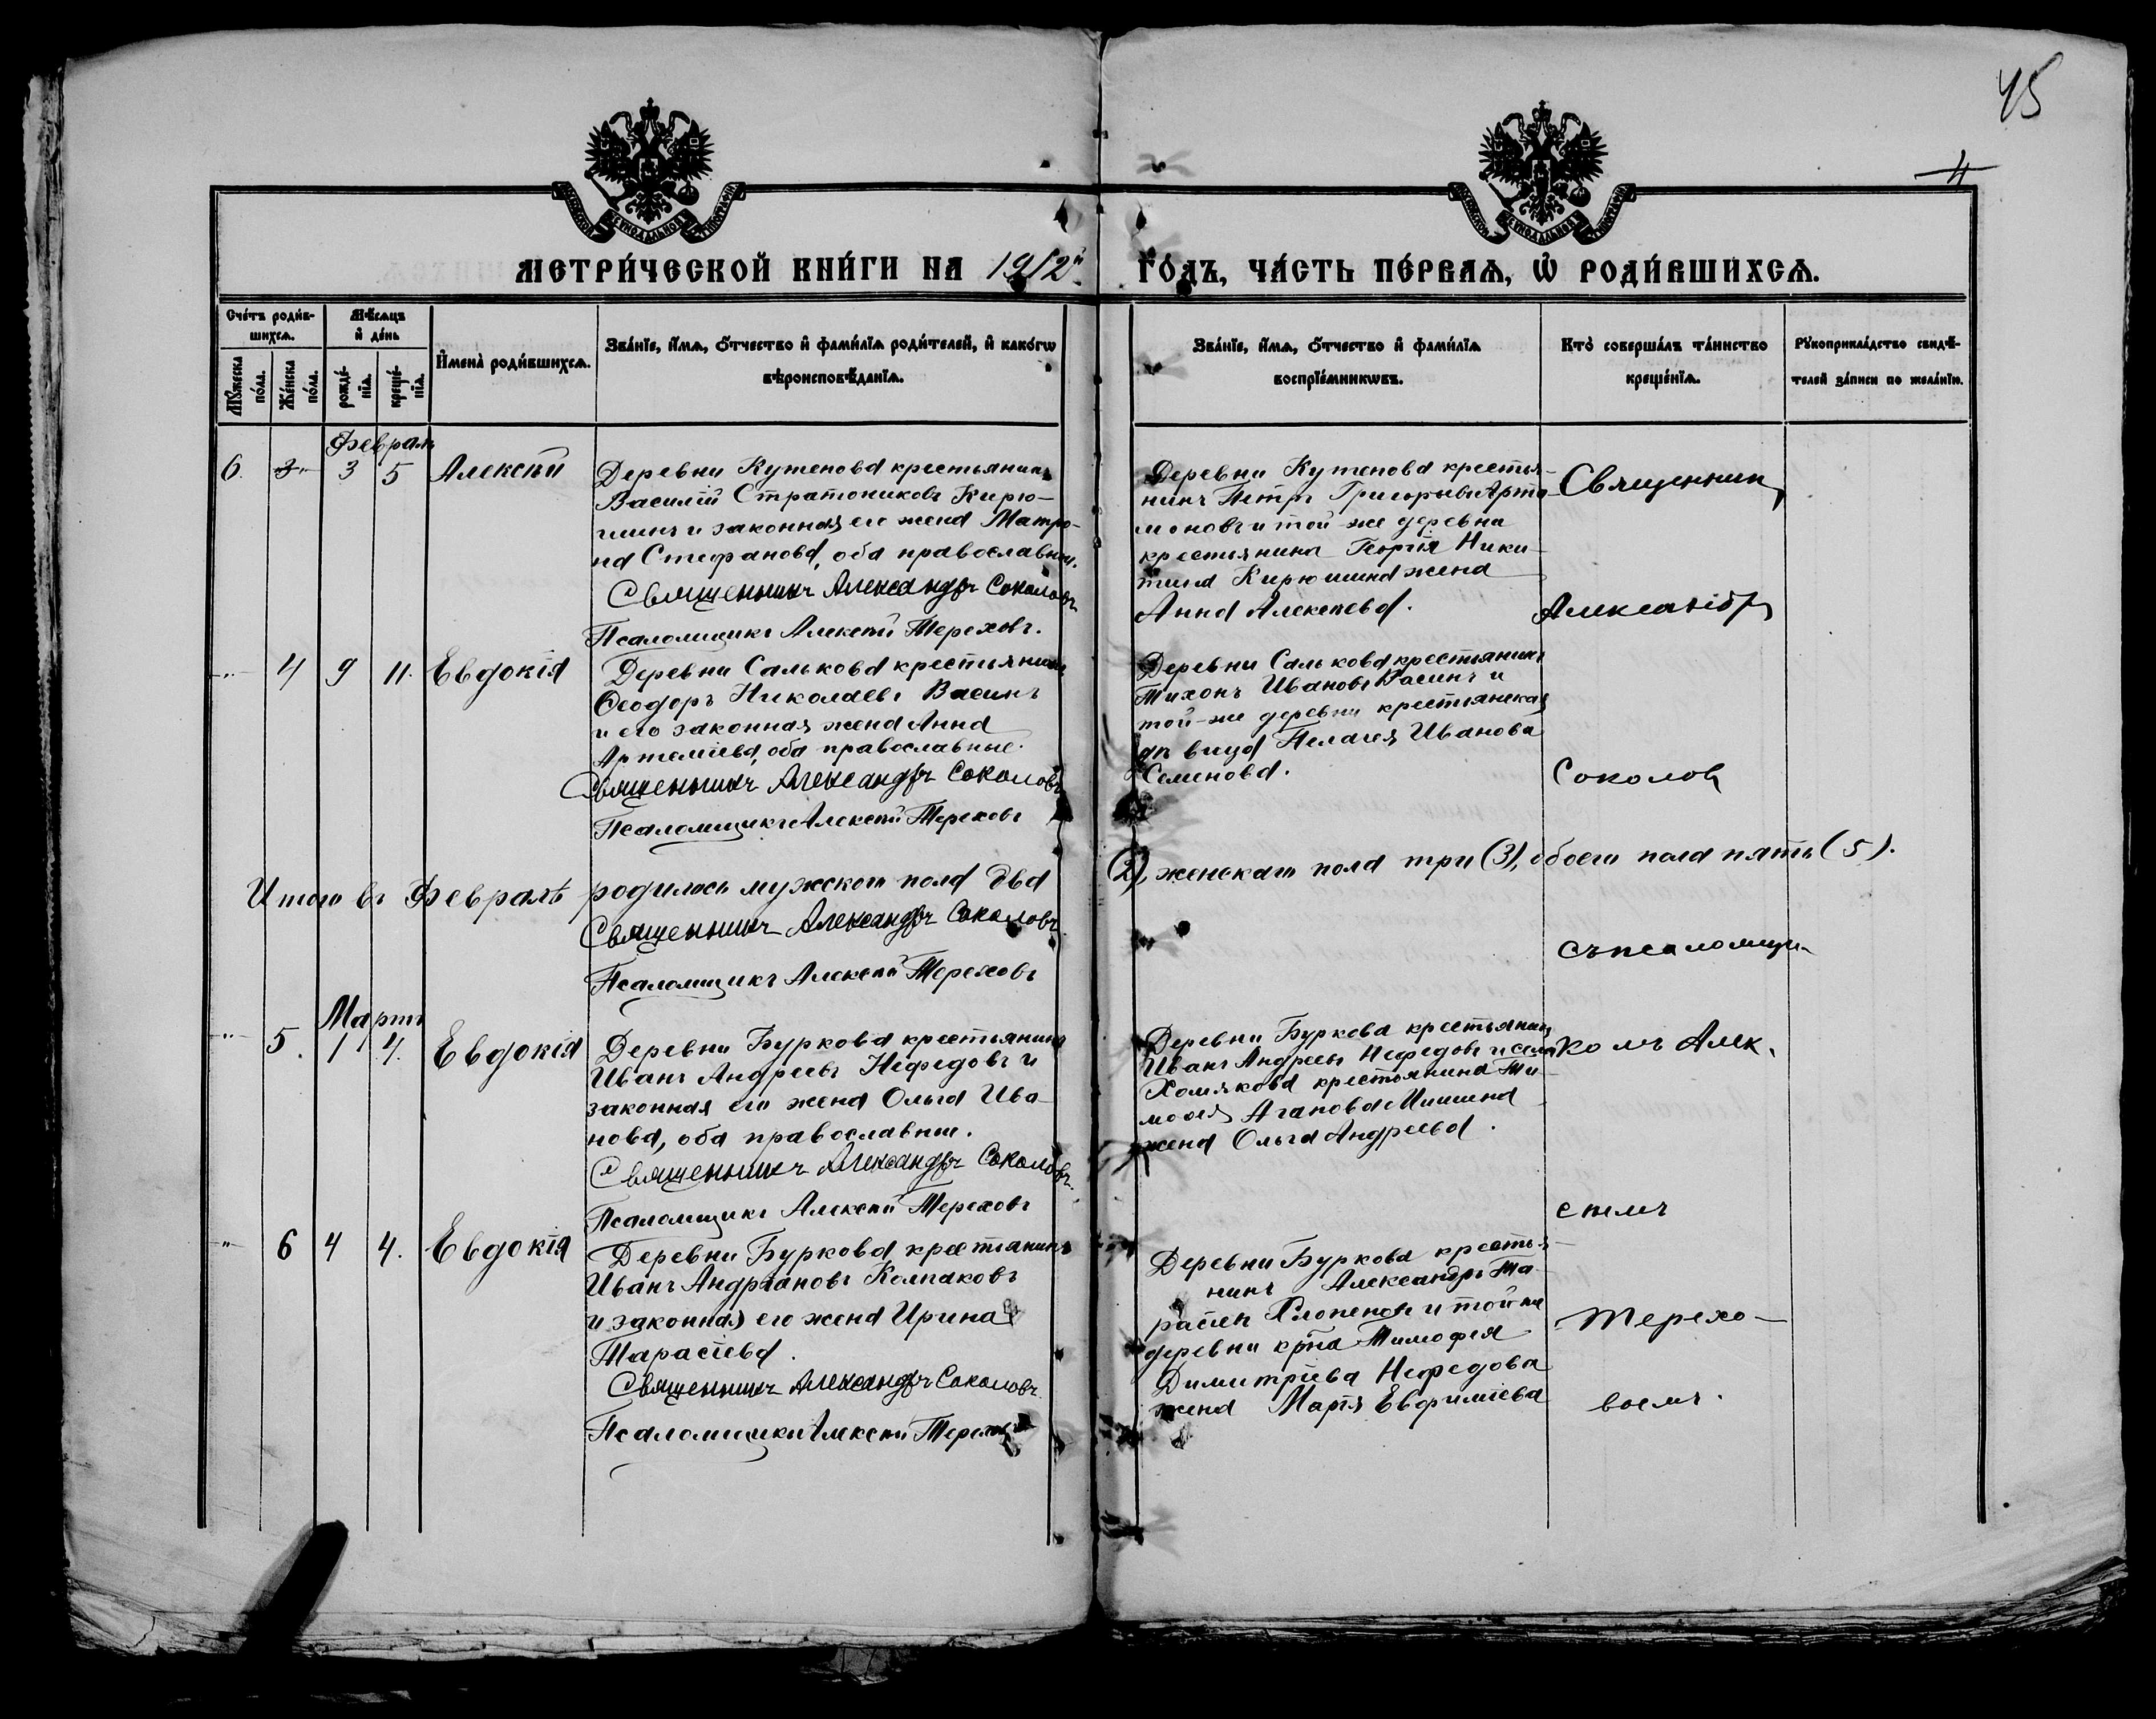 45
4
МЕТРИ́ЧЕСКОЙ КНИ́ГИ НА 1912й ГО́ДЪ, ЧА́СТЬ ПЕ́РВАЯ, Ѽ РОДИ́ВШИХСЯ.
Сче́тъ роди́в-
шихся.
Мѣ́сяцъ
и҆ де́нь
Мꙋ́жеска
по́ла.
Же́нска
по́ла.
рожде́-
нїѧ.
креще́-
нїѧ.
И҆мена̀ роди́вшихсѧ.
Зва́нїе, и҆́мѧ, ѻ҆́тчество и҆ фами́лїѧ роди́телей, и҆ како́гѡ
вѣроисповѣ́данїѧ.
Зва́нїе, и҆́мѧ, ѻ҆́тчество и҆ фами́лїѧ
воспрїе́мникѡвъ.
Кто̀ соверша́лъ та́инство
креще́нїѧ.
Рꙋкоприкла́дство свидѣ́-
телей за́писи по жела́нїю.
Февраль
6. 3 5 Алексѣй
Деревни Кутенова крестьянинъ
Василій Стратониковъ Кирю-
шинъ и законная его жена Матро-
на Стефанова, оба православные.
Священникъ Александръ Соколовъ
Псаломщикъ Алексѣй Тереховъ.
Деревни Кутенова крестья-
нинъ Петръ Григорьевъ Арта-
моновъ и той-же деревни
крестьянина Георгія Ники-
тина Кирюшина жена
Анна Алексѣева.
-"- 4 9 11. Евдокія
Деревни Салькова крестьянинъ
Ѳеодоръ Николаевъ Васинъ
и его законная жена Анна
Артеміева, оба православные.
Священникъ Александръ Соколовъ
Псаломщикъ Алексѣй Тереховъ
Деревни Салькова крестьянинъ
Тихонъ Ивановъ Васинъ и
той-же деревни крестьянская
дѣвица Пелагея Иванова
Семенова.
Итого въ Февралѣ родилось мужского пола два (2), женскаго пола три (3), обоего пола пять (5).
Священникъ Александръ Соколовъ
Псаломщикъ Алексѣй Тереховъ
Мартъ
-"- 5. 1 4. Евдокія
Деревни Буркова крестьянинъ
Иванъ Андреевъ Нефедовъ и
законная его жена Ольга Ива-
нова, оба православные.
Священникъ Александръ Соколовъ.
Псаломщикъ Алексѣй Тереховъ
Деревни Буркова крестьянинъ
Иванъ Андреевъ Нефедовъ и села
Хомякова крестьянина Ти-
моѳея Агапова Мишина
жена Ольга Андреева.
-"- 6 4 4. Евдокія
Деревни Буркова крестьянинъ
Иванъ Андріановъ Колпаковъ
и законная его жена Ирина
Тарасіева.
Священникъ Александръ Соколовъ.
Псаломщикъ Алексѣй Тереховъ
Деревни Буркова крестья-
нинъ Александръ Та-
расіевъ и той же
деревни кр-на Тимофея
Димитріева Нефедова
жена Марія Евфиміева
Священникъ
Александръ
Соколовъ
съ псаломщи-
комъ Алек-
сѣемъ
Терехо-
вымъ.